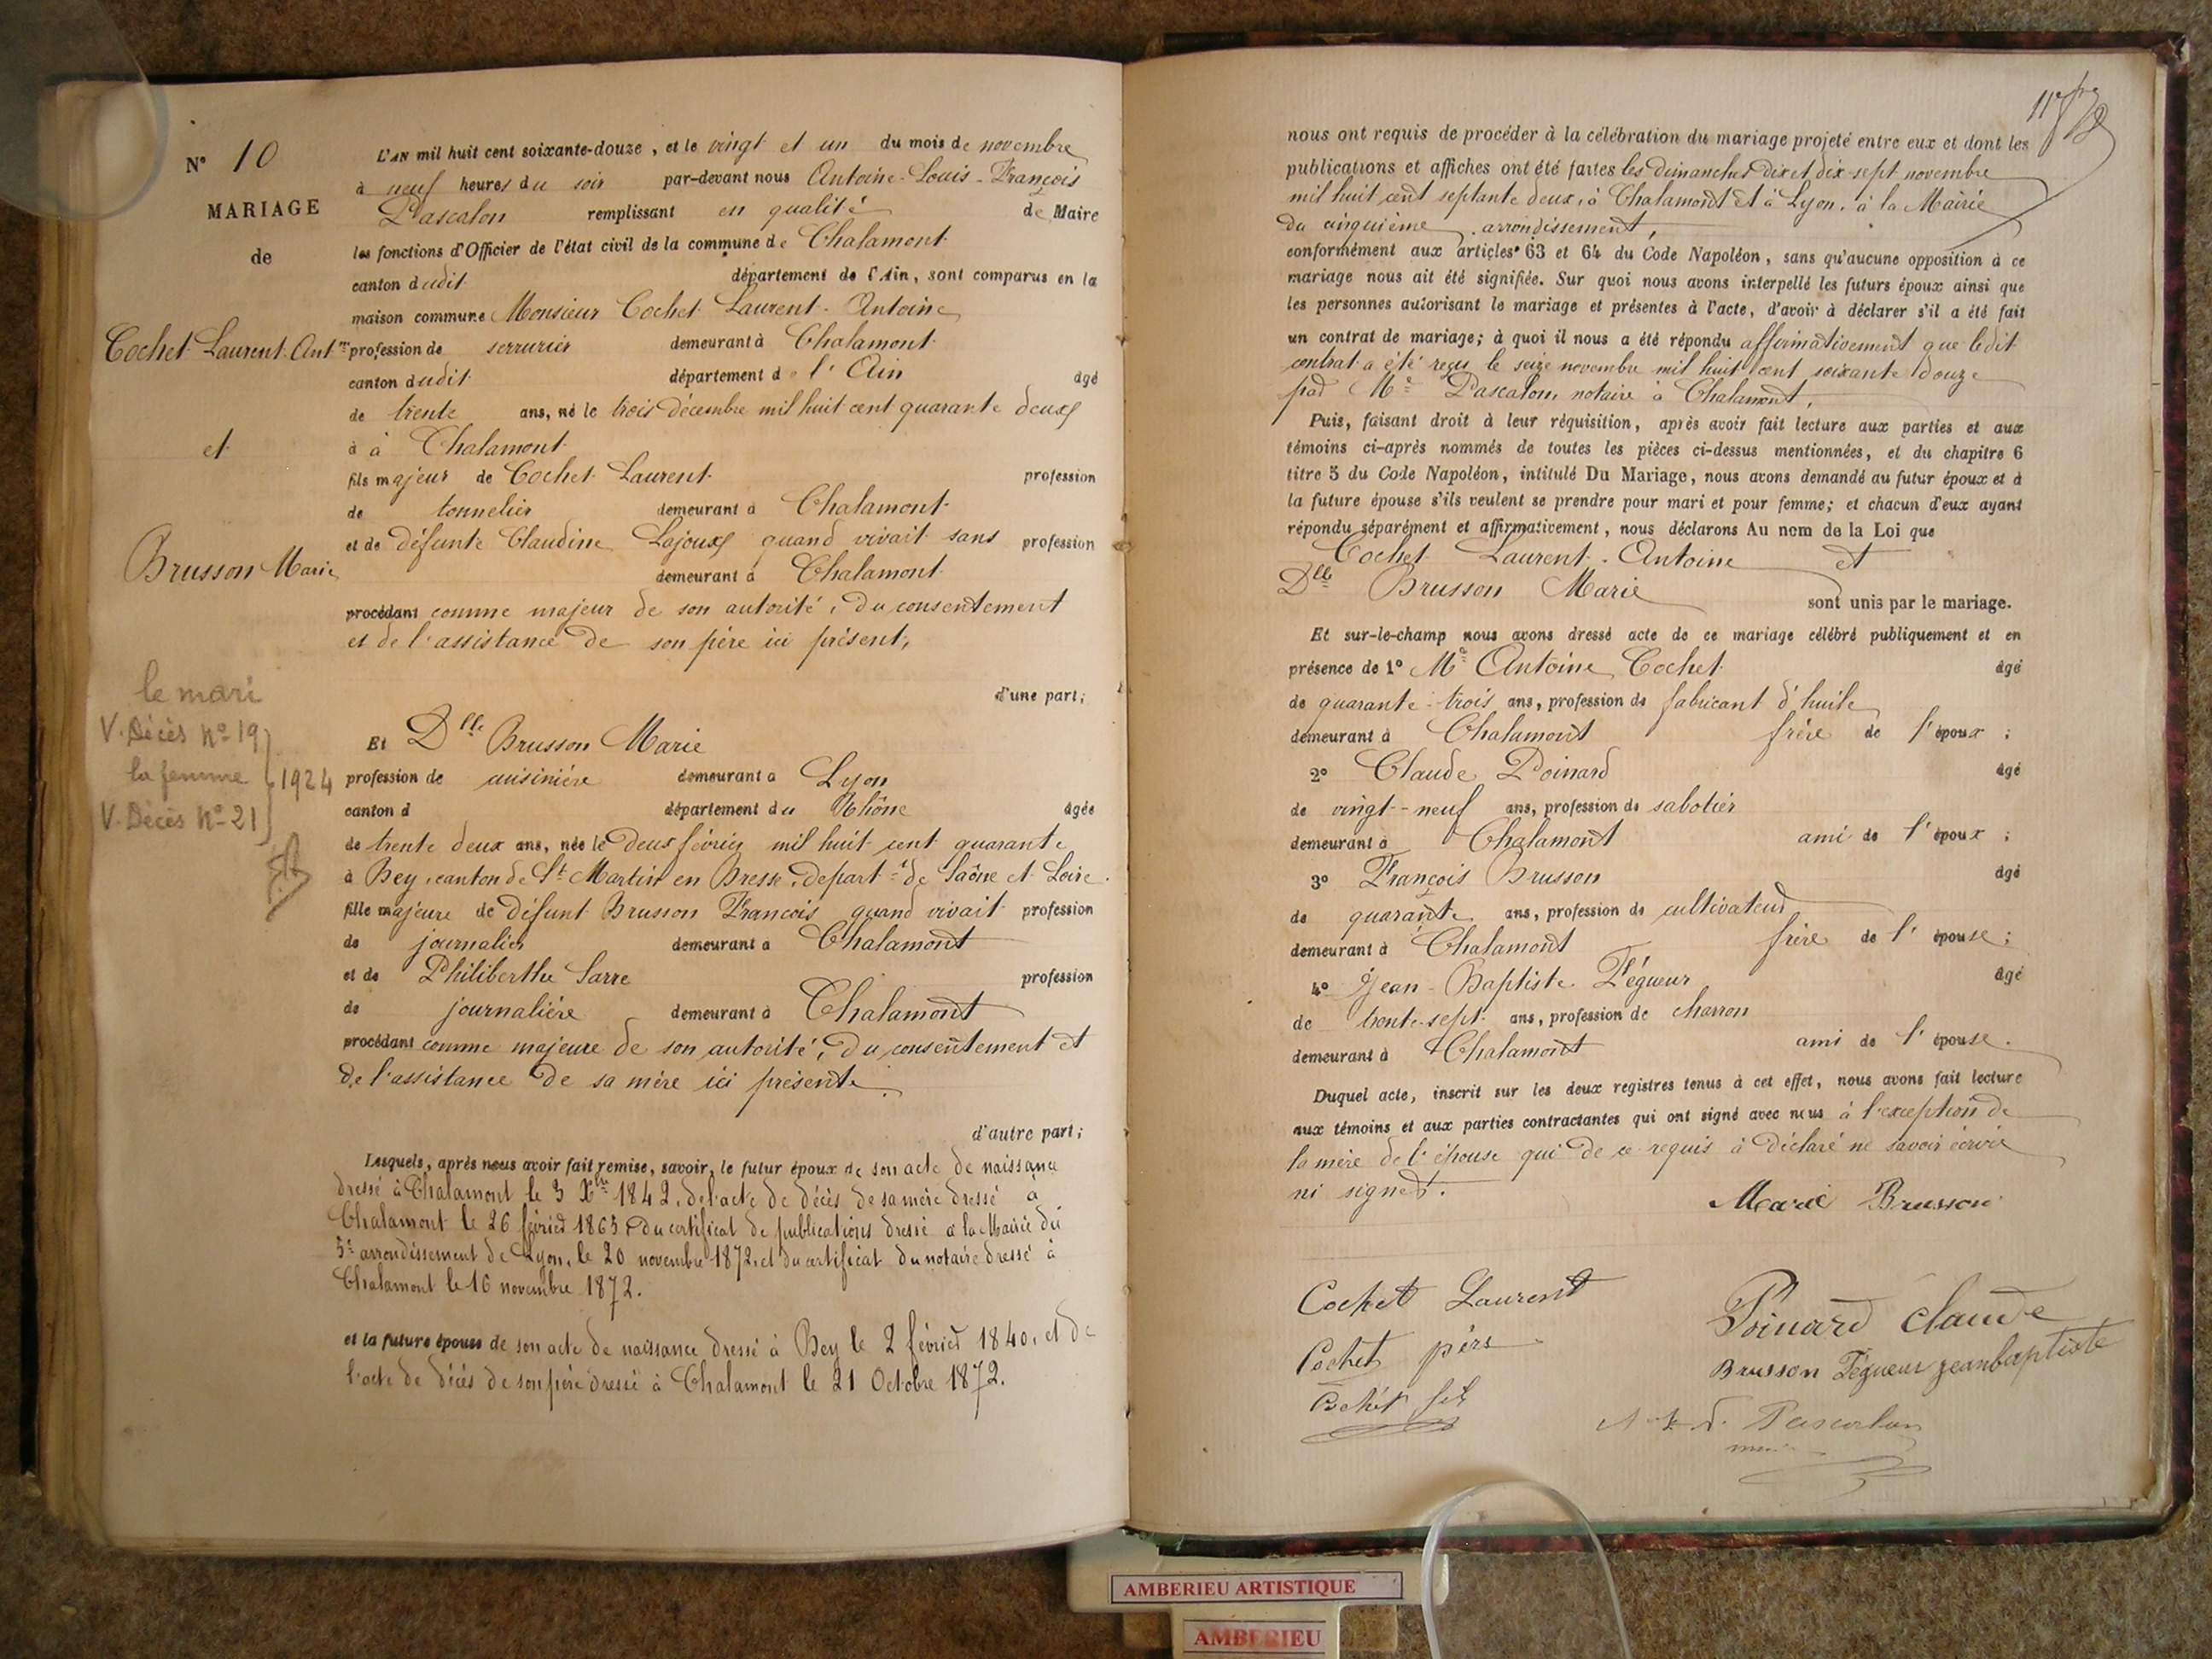 N° 10
MARIAGE
de
Cochet Laurent Ant.ne
et
Brusson Marie
le mari
V. Décès N° 19
la femme 1924
V. Décès N° 21
L'AN mil huit cent soixante-douze, et le vingt et un du mois de novembre
à neuf heures du soir par-devant nous Antoine-Louis-François
Pascalon remplissant en qualité de Maire
les fonctions d'Officier de l'état civil de la commune de Chalamont
canton dudit département de l'Ain, sont comparus en la
maison commune Monsieur Cochet Laurent-Antoine
profession de serrurier demeurant à Chalamont
canton dudit département de l'Ain âgé
de trente ans, né le trois décembre mil huit cent quarante deux
à à Chalamont
fils majeur de Cochet Laurent profession
de tonnelier demeurant à Chalamont
et de défunte Claudine Lajoux quand vivait sans profession
demeurant à Chalamont
procédant comme majeur de son autorité, du consentement
et de l'assistance de son père ici présent,
d'une part;
Et Dlle Brusson Marie
profession de cuisinière demeurant à Lyon
canton d département du Rhône âgée
de trente deux ans, née le deux février mil huit cent quarante
à Bey, canton de St Martin en Bresse, départ.t de Saône et Loire.
fille majeure de défunt Brusson François quand vivait profession
de journalier demeurant à Chalamont
et de Philiberthe Sarre profession
de journalière demeurant à Chalamont
procédant comme majeure de son autorité, du consentement et
de l'assistance de sa mère ici présente.
d'autre part;
Lesquels, après nous avoir fait remise, savoir, le futur époux de son acte de naissance
dressé à Chalamont le 3 Xbre 1842, de l'acte de décès de sa mère dressé à
Chalamont le 26 février 1865, du certificat de publications dressé à la Mairie du
5e arrondissement de Lyon, le 20 novembre 1872, et du certificat du notaire dressé à
Chalamont le 16 novembre 1872.
et la future épouse de son acte de naissance dressé à Bey le 2 février 1840, et de
l'acte de décès de son père dressé à Chalamont le 21 Octobre 1872.
nous ont requis de procéder à la célébration du mariage projeté entre eux et dont les
publications et affiches ont été faites les dimanches dix et dix-sept novembre
mil huit cent septante deux, à Chalamont et à Lyon, à la Mairie
du cinquième arrondissement,
conformément aux articles 63 et 64 du Code Napoléon, sans qu'aucune opposition à ce
mariage nous ait été signifiée. Sur quoi nous avons interpellé les futurs époux ainsi que
les personnes autorisant le mariage et présentes à l'acte, d'avoir à déclarer s'il a été fait
un contrat de mariage; à quoi il nous a été répondu affirmativement que ledit
contrat a été reçu le seize novembre mil huit cent soixante douze
par Me Pascalon, notaire à Chalamont,
Puis, faisant droit à leur réquisition, après avoir fait lecture aux parties et aux
témoins ci-après nommés de toutes les pièces ci-dessus mentionnées, et du chapitre 6
titre 5 du Code Napoléon, intitulé Du Mariage, nous avons demandé au futur époux et à
la future épouse s'ils veulent se prendre pour mari et pour femme; et chacun d'eux ayant
répondu séparément et affirmativement, nous déclarons Au nom de la Loi que
Cochet Laurent-Antoine et
Dlle Brusson Marie
sont unis par le mariage.
Et sur-le-champ nous avons dressé acte de ce mariage célébré publiquement et en
présence de 1° Mr Antoine Cochet âgé
de quarante-trois ans, profession de fabricant d'huile
demeurant à Chalamont frère de l'époux;
2° Claude Poinard âgé
de vingt-neuf ans, profession de sabotier
demeurant à Chalamont ami de l'époux;
3° François Brusson âgé
de quarante ans, profession de cultivateur
demeurant à Chalamont frère de l'épouse;
4° Jean-Baptiste Tégueur âgé
de trente-sept ans, profession de charron
demeurant à Chalamont ami de l'épouse.
Duquel acte, inscrit sur les deux registres tenus à cet effet, nous avons fait lecture
aux témoins et aux parties contractantes qui ont signé avec nous à l'exception de
la mère de l'épouse qui de ce requis à déclaré ne savoir écrire
ni signer.
Marie Brusson
Cochet Laurent
Poinard Claude
Cochet père
Brusson Tégueur jeanbaptiste
Cochet fils
Pascalon
AMBERIEU ARTISTIQUE
AMBERIEU